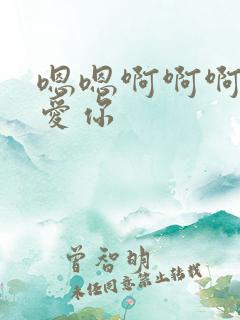 嗯嗯啊啊啊
爱你
曾智明
未经同意禁止转载